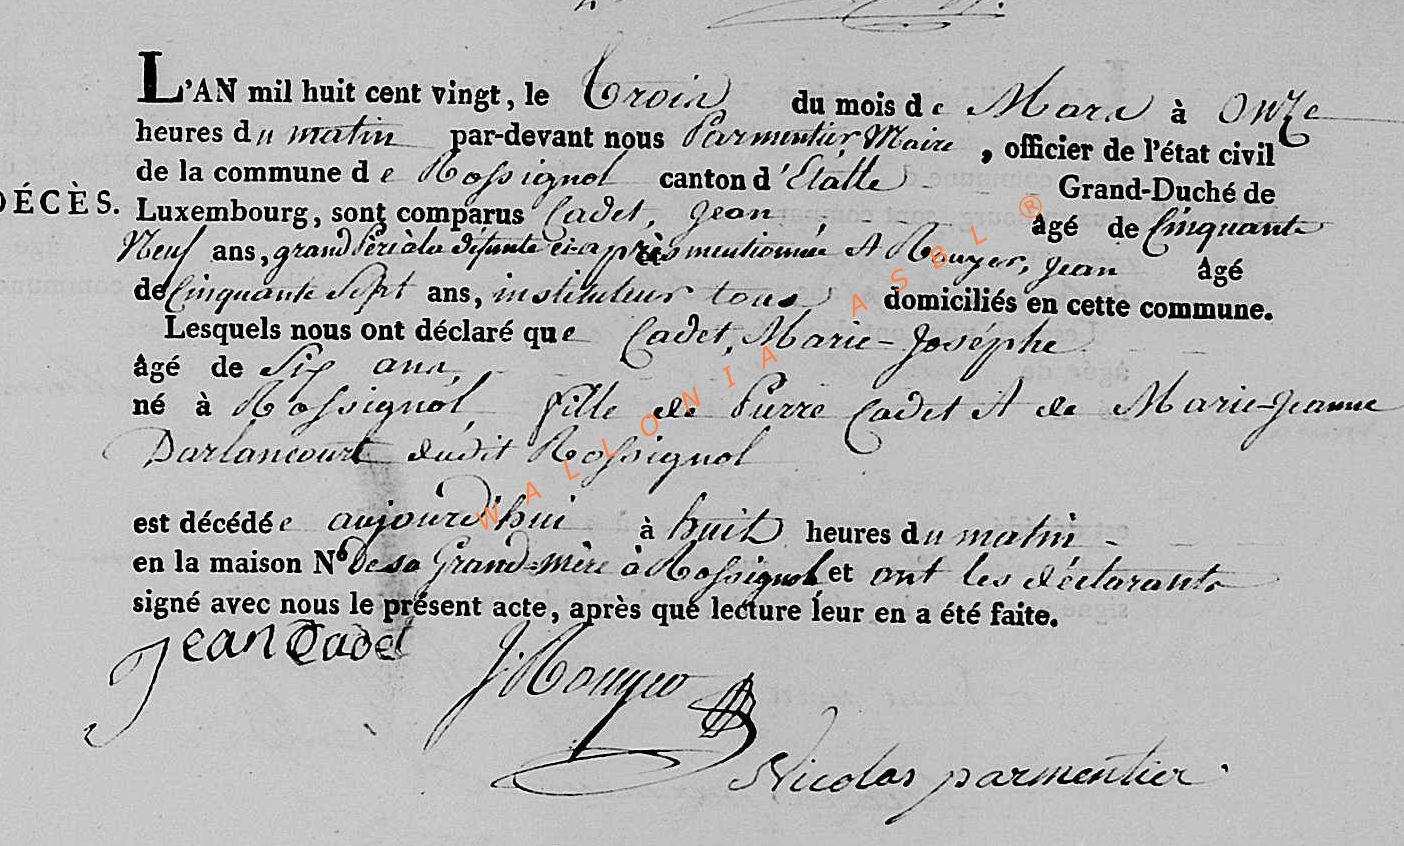 L'AN mil huit cent vingt, le Trois du mois de Mars à Onze
heures du matin par-devant nous Parmentier Maire, officier de l'état civil
de la commune de Rossignol canton d'Etalle Grand-Duché de
DÉCÈS.
Luxembourg, sont comparus Cadet, Jean âgé de Cinquante
Neuf ans, grand Père à la défunte ci-après mentionnée et Rouyer, Jean âgé
de Cinquante Sept ans, instituteur tous domiciliés en cette commune.
Lesquels nous ont déclaré que Cadet, Marie-Joséphe
âgé de Six ans,
né à Rossignol, fille de Pierre Cadet et de Marie-Jeanne
Darlancourt dudit Rossignol
est décédée aujourd'hui à huit heures du matin
en la maison No de sa Grand-mère à Rossignol et ont les déclarants
signé avec nous le présent acte, après que lecture leur en a été faite.
Jean Cadet
J Rouyer
Nicolas parmentier
WALLONIA ASBL ®